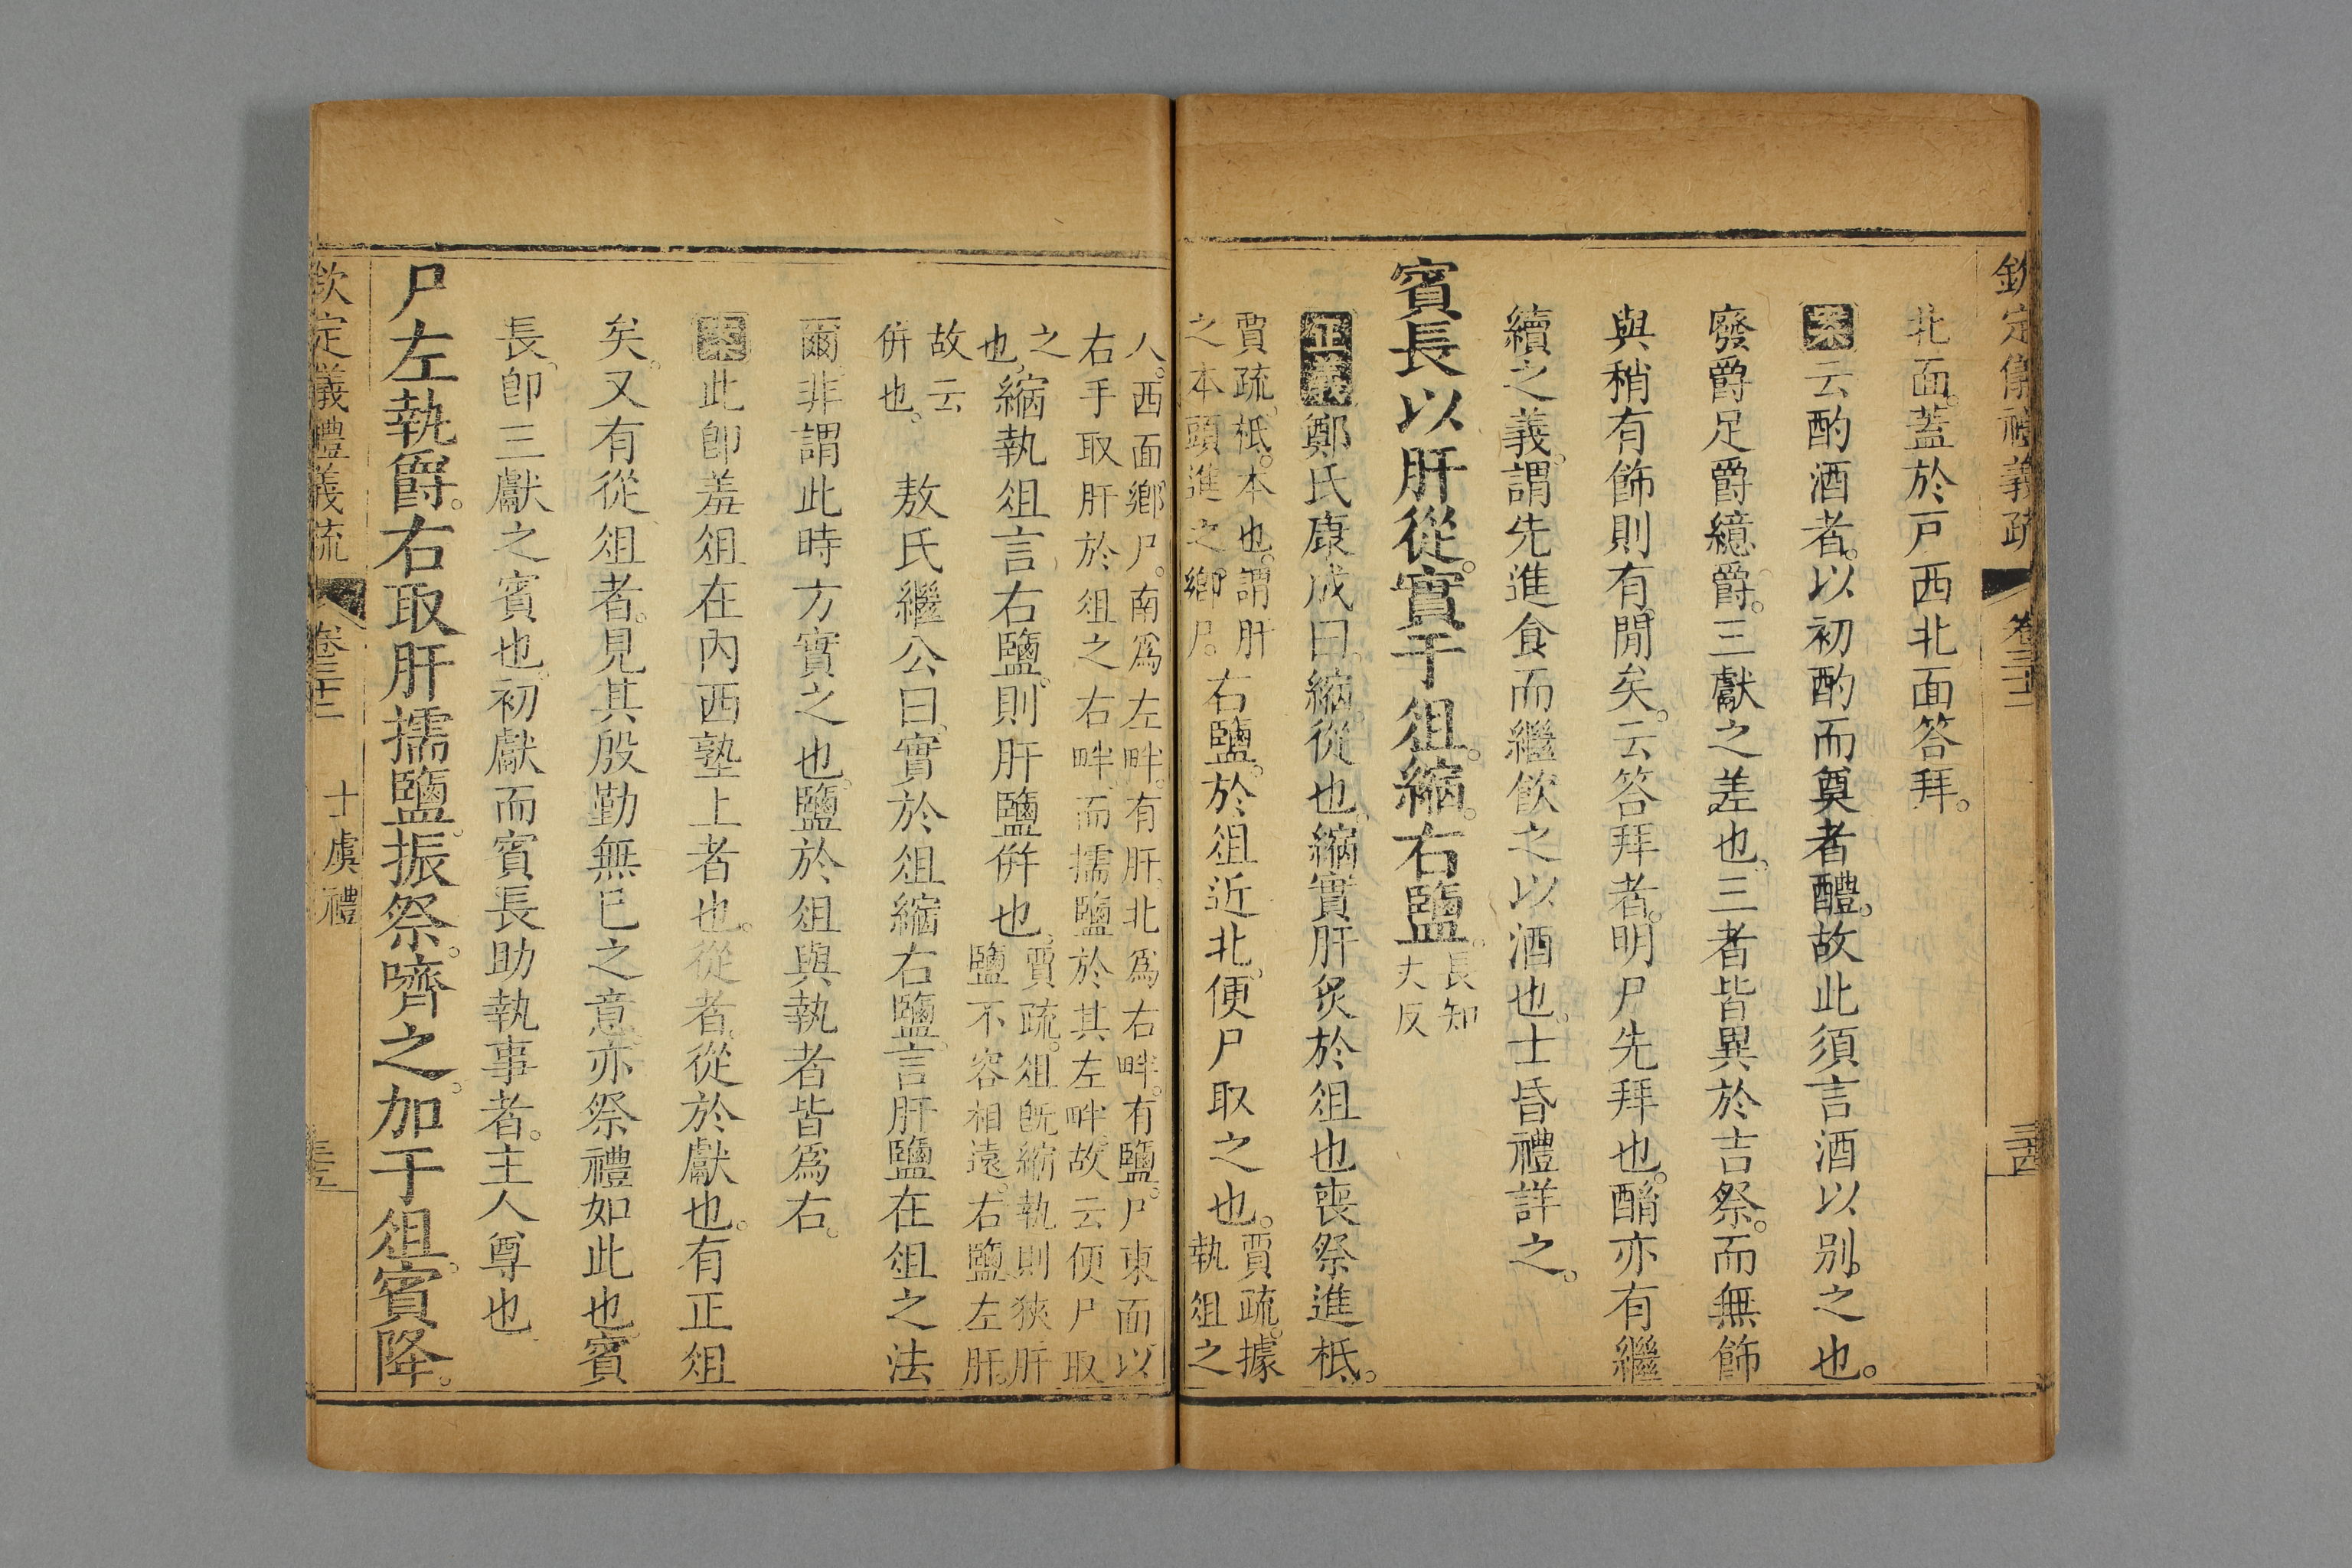 欽定儀禮義疏 卷三十三 三十四
北面。蓋於戸西北面答拜。
案云酌酒者。以初酌而奠者醴。故此須言酒以别之也。
廢爵足爵繶爵。三獻之差也。三者皆異於吉祭。而無飾
與稍有飾則有閒矣。云答拜者。明尸先拜也。酳亦有繼
續之義。謂先進食而繼飲之以酒也。士昏禮詳之。
賓長以肝從。實于俎。縮。右鹽。長知丈反
正義鄭氏康成曰。縮。從也。縮實肝炙於俎也。喪祭進柢。
賈疏。柢。本也。謂肝之本頭進之。鄉尸。右鹽。於俎近北。便尸取之也。賈疏。據執俎之
人。西面鄉尸。南爲左畔。有肝。北爲右畔。有鹽。尸東面以右手取肝於俎之右畔。而擩鹽於其左畔。故云便尸取
之也。縮執俎言右鹽。則肝鹽併也。賈疏。俎旣縮執則狹。肝鹽不容相遠。右鹽左肝。
故云併也。 敖氏繼公曰。實於俎縮右鹽。言肝鹽在俎之法
爾。非謂此時方實之也。鹽於俎與執者皆爲右。
案此卽羞俎在內西塾上者也。從者。從於獻也。有正俎
矣。又有從俎者。見其殷勤無已之意。亦祭禮如此也。賓
長。卽三獻之賓也。初獻而賓長助執事者。主人尊也
尸左執爵。右取肝擩鹽。振祭。嚌之。加于俎。賓降。
欽定儀禮義疏 卷三十三 士虞禮 三十五